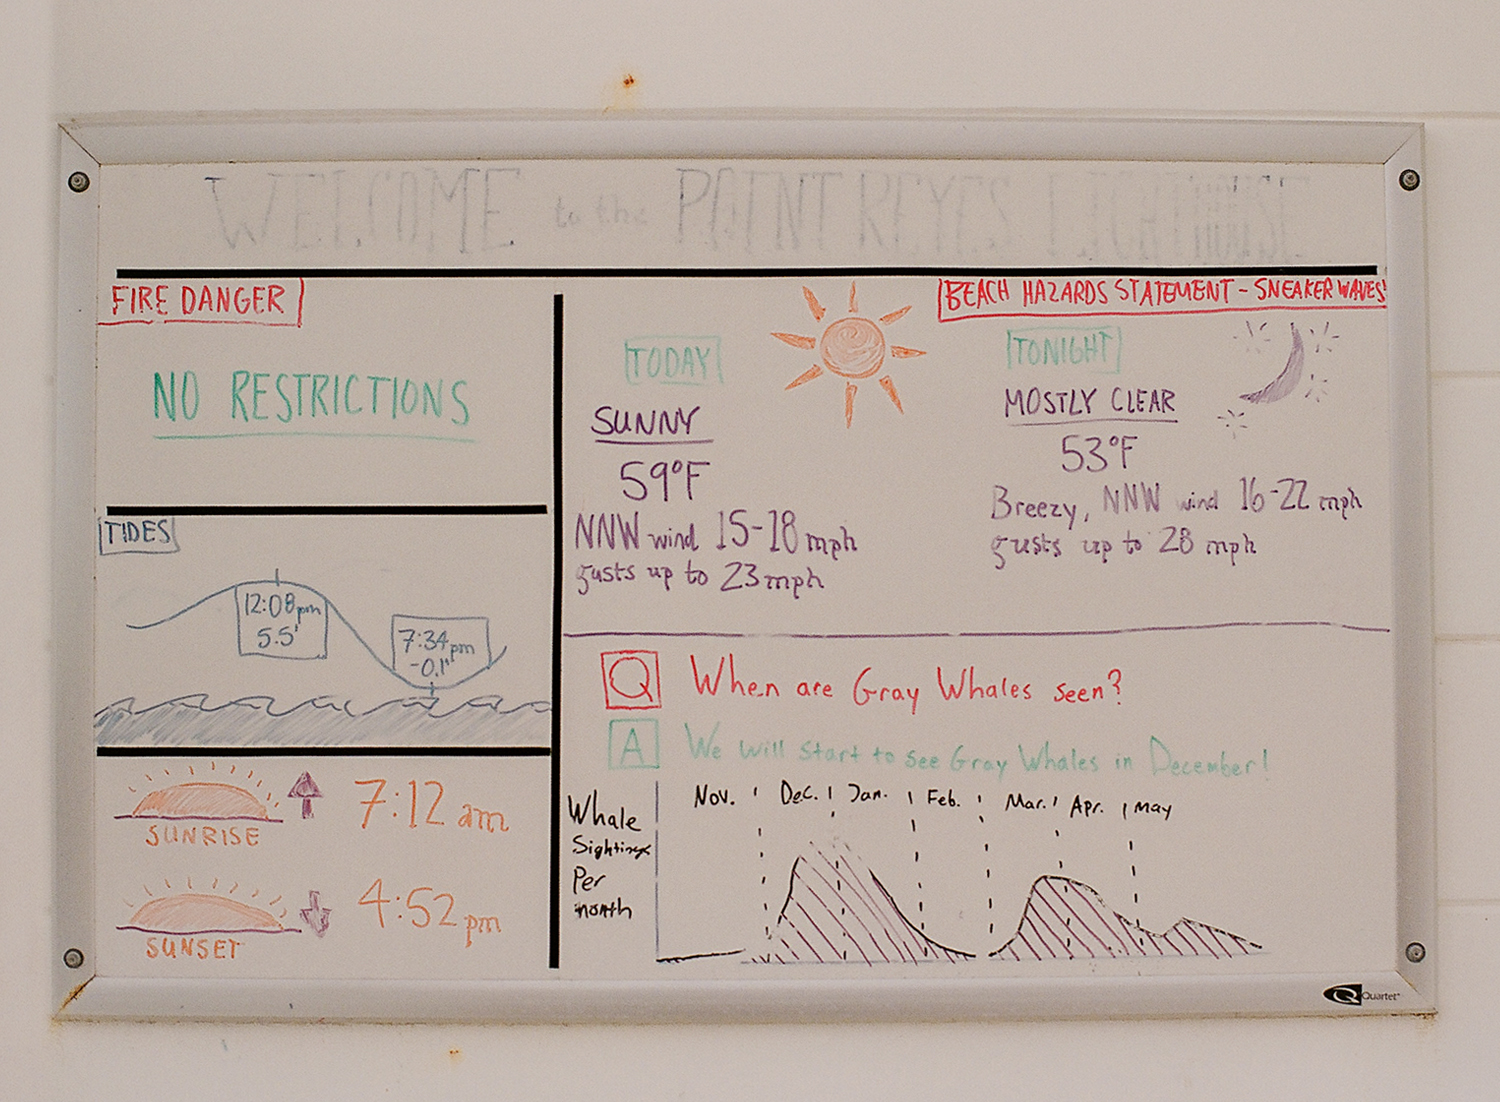 WELCOME to the POINT REYES LIGHTHOUSE
FIRE DANGER
NO RESTRICTIONS
TIDES
12:08pm
5.5'
7:34pm
-0.1'
SUNRISE
7:12 am
SUNSET
4:52 pm
BEACH HAZARDS STATEMENT - SNEAKER WAVES
TODAY
SUNNY
59°F
NNW wind 15-18 mph
gusts up to 23 mph
TONIGHT
MOSTLY CLEAR
53°F
Breezy, NNW wind 16-22 mph
gusts up to 28 mph
Q When are Gray Whales seen?
A We will start to see Gray Whales in December!
Whale
Sightings
Per
month
Nov. Dec. Jan. Feb. Mar. Apr. May
Quartet